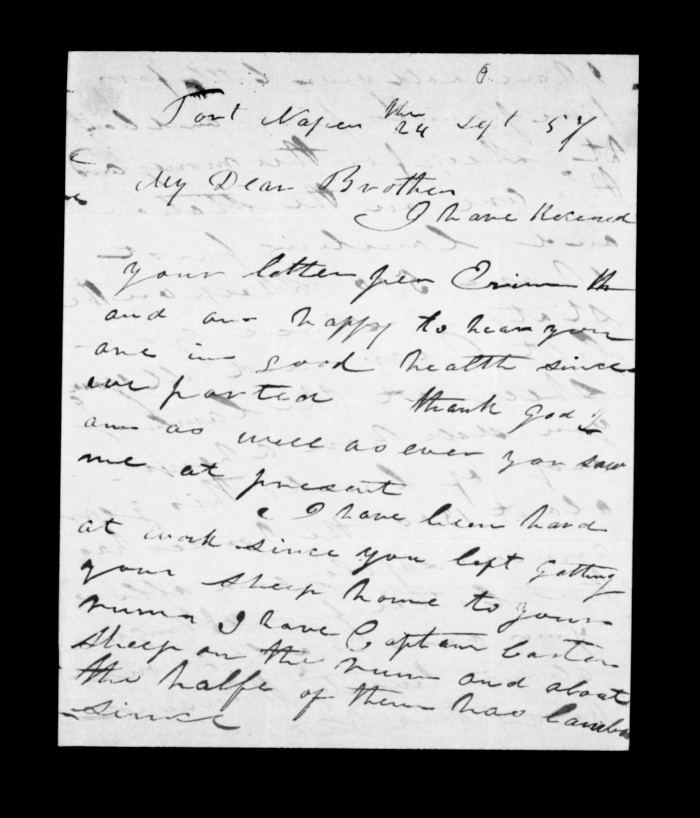 Port Napier 24 Sept 57
My Dear Brother
I have Received
your letter per
and am happy to hear you
are in good health since
we parted thank God I
am as well as ever you saw
me at present
I have been hard
at work since you left getting
your sheep home to your
runn I have Captain Carter
sheep on the runn and about
the halfe of them has lambd
since